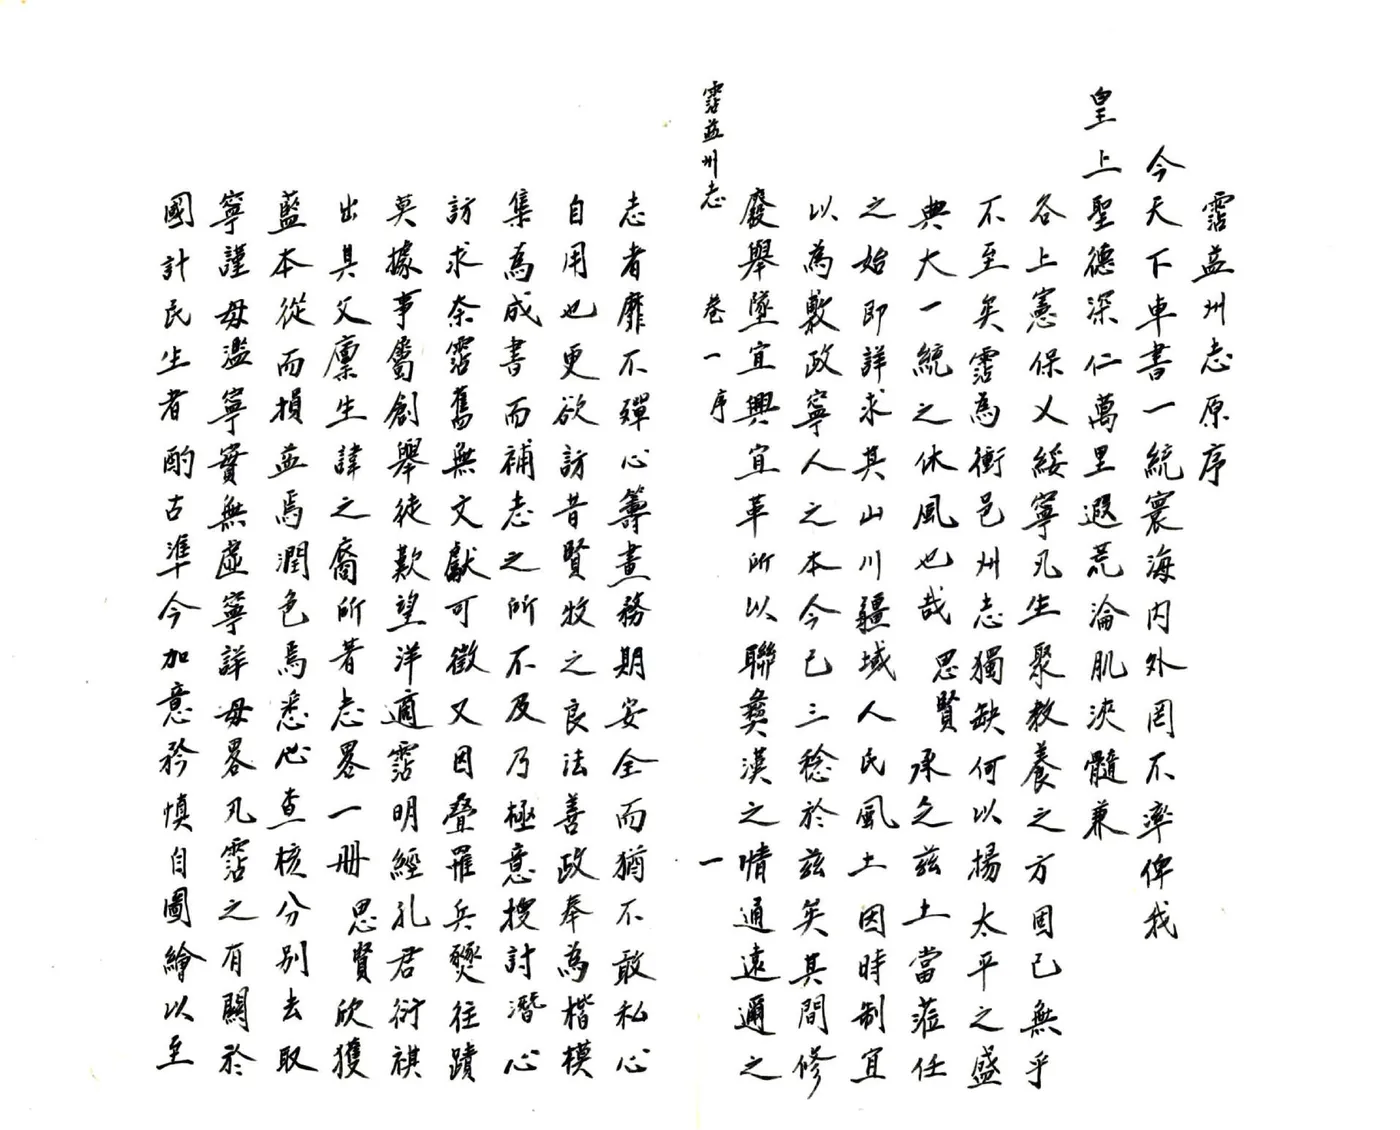 霑益州志原序
今天下車書一統寰海內外罔不率俾我
皇上聖德深仁萬里遐荒淪肌浹髓兼
各上憲保乂綏寧凡生聚教養之方固已無乎
不至矣霑為衝邑州志獨缺何以揚太平之盛
典大一統之休風也哉思賢承乏茲土當蒞任
之始即詳求其山川疆域人民風土因時制宜
以為敷政寧人之本今已三稔於茲矣其間修
廢舉墜宜興宜革所以聯彝漢之情通遠邇之
霑益州志 卷一 序 一
志者靡不殫心籌畫務期安全而猶不敢私心
自用也更欲訪昔賢牧之良法善政奉為楷模
集為成書而補志之所不及乃極意搜討潛心
訪求奈霑舊無文獻可徵又因疊罹兵燹往蹟
莫據事屬創舉徒歎望洋適霑明經孔君衍祺
出其父廩生諱之裔所著志畧一冊思賢欣獲
藍本從而損益焉潤色焉悉心查核分別去取
寧謹毋濫寧實無虛寧詳毋畧凡霑之有關於
國計民生者酌古準今加意矜慎自圖繪以至